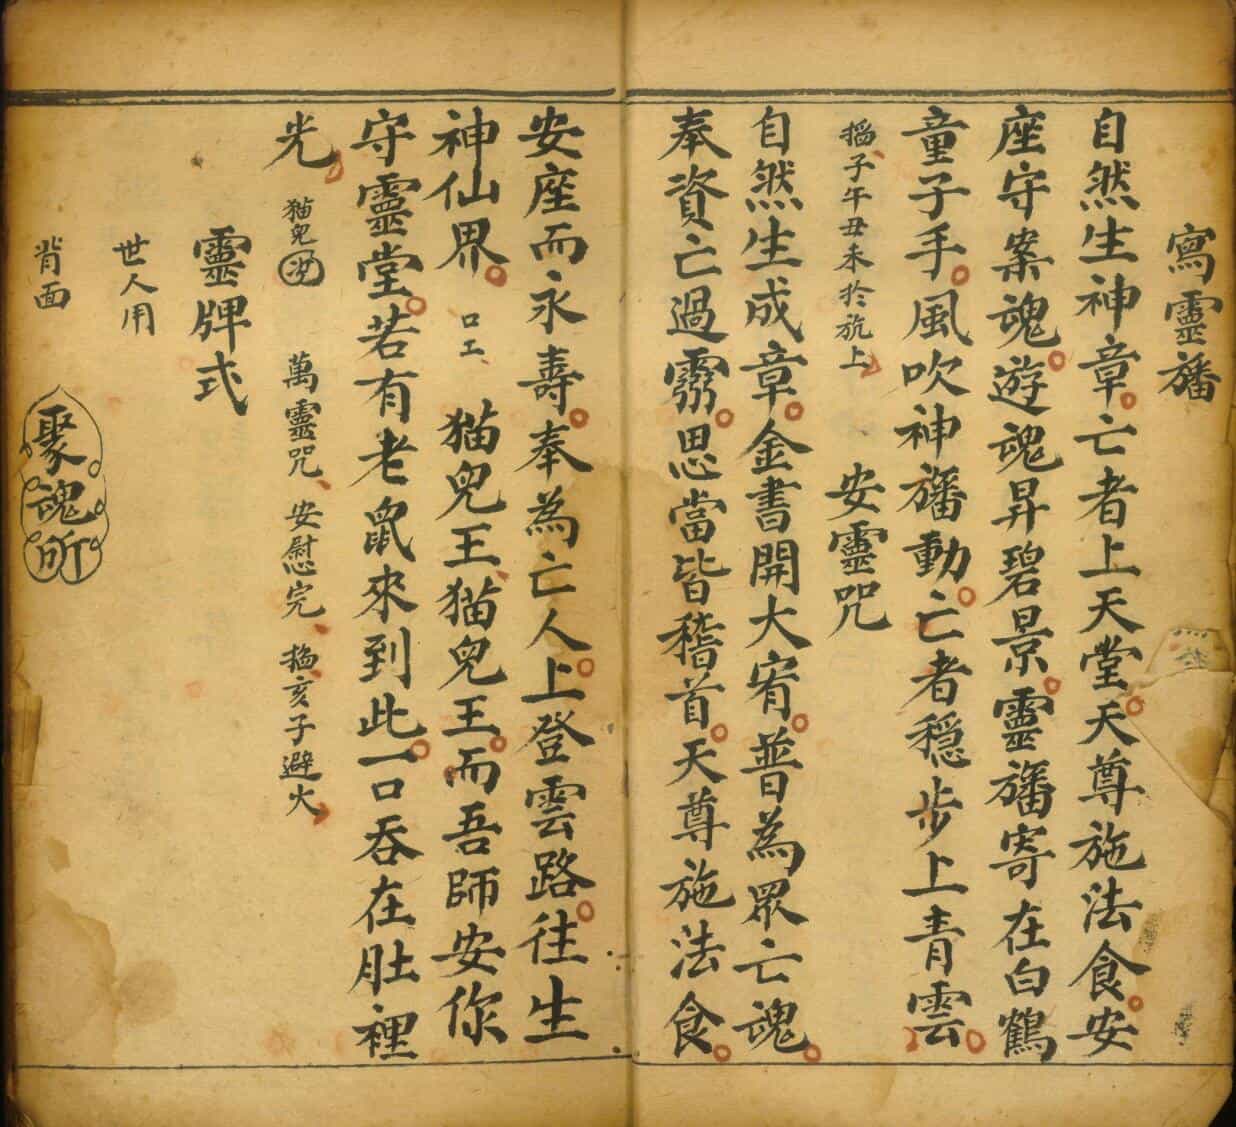 寫靈旛
自然生神章亡者上天堂天尊施法食安
座守案魂遊魂昇碧景靈旛寄在白鶴
童子手風吹神旛動亡者穩步上青雲
搯子午丑未於旐上 安靈咒
自然生成章金書開大宥普為眾亡魂
奉資亡過霛思當皆稽首天尊施法食
安座而永壽奉為亡人上登雲路往生
神仙界 口工 猫兒王猫兒王而吾師安你
守靈堂若有老鼠來到此一口吞在肚裡
光 猫兒 萬靈咒安慰完搯亥子避火
靈牌式
世人用
背面 聚魂所